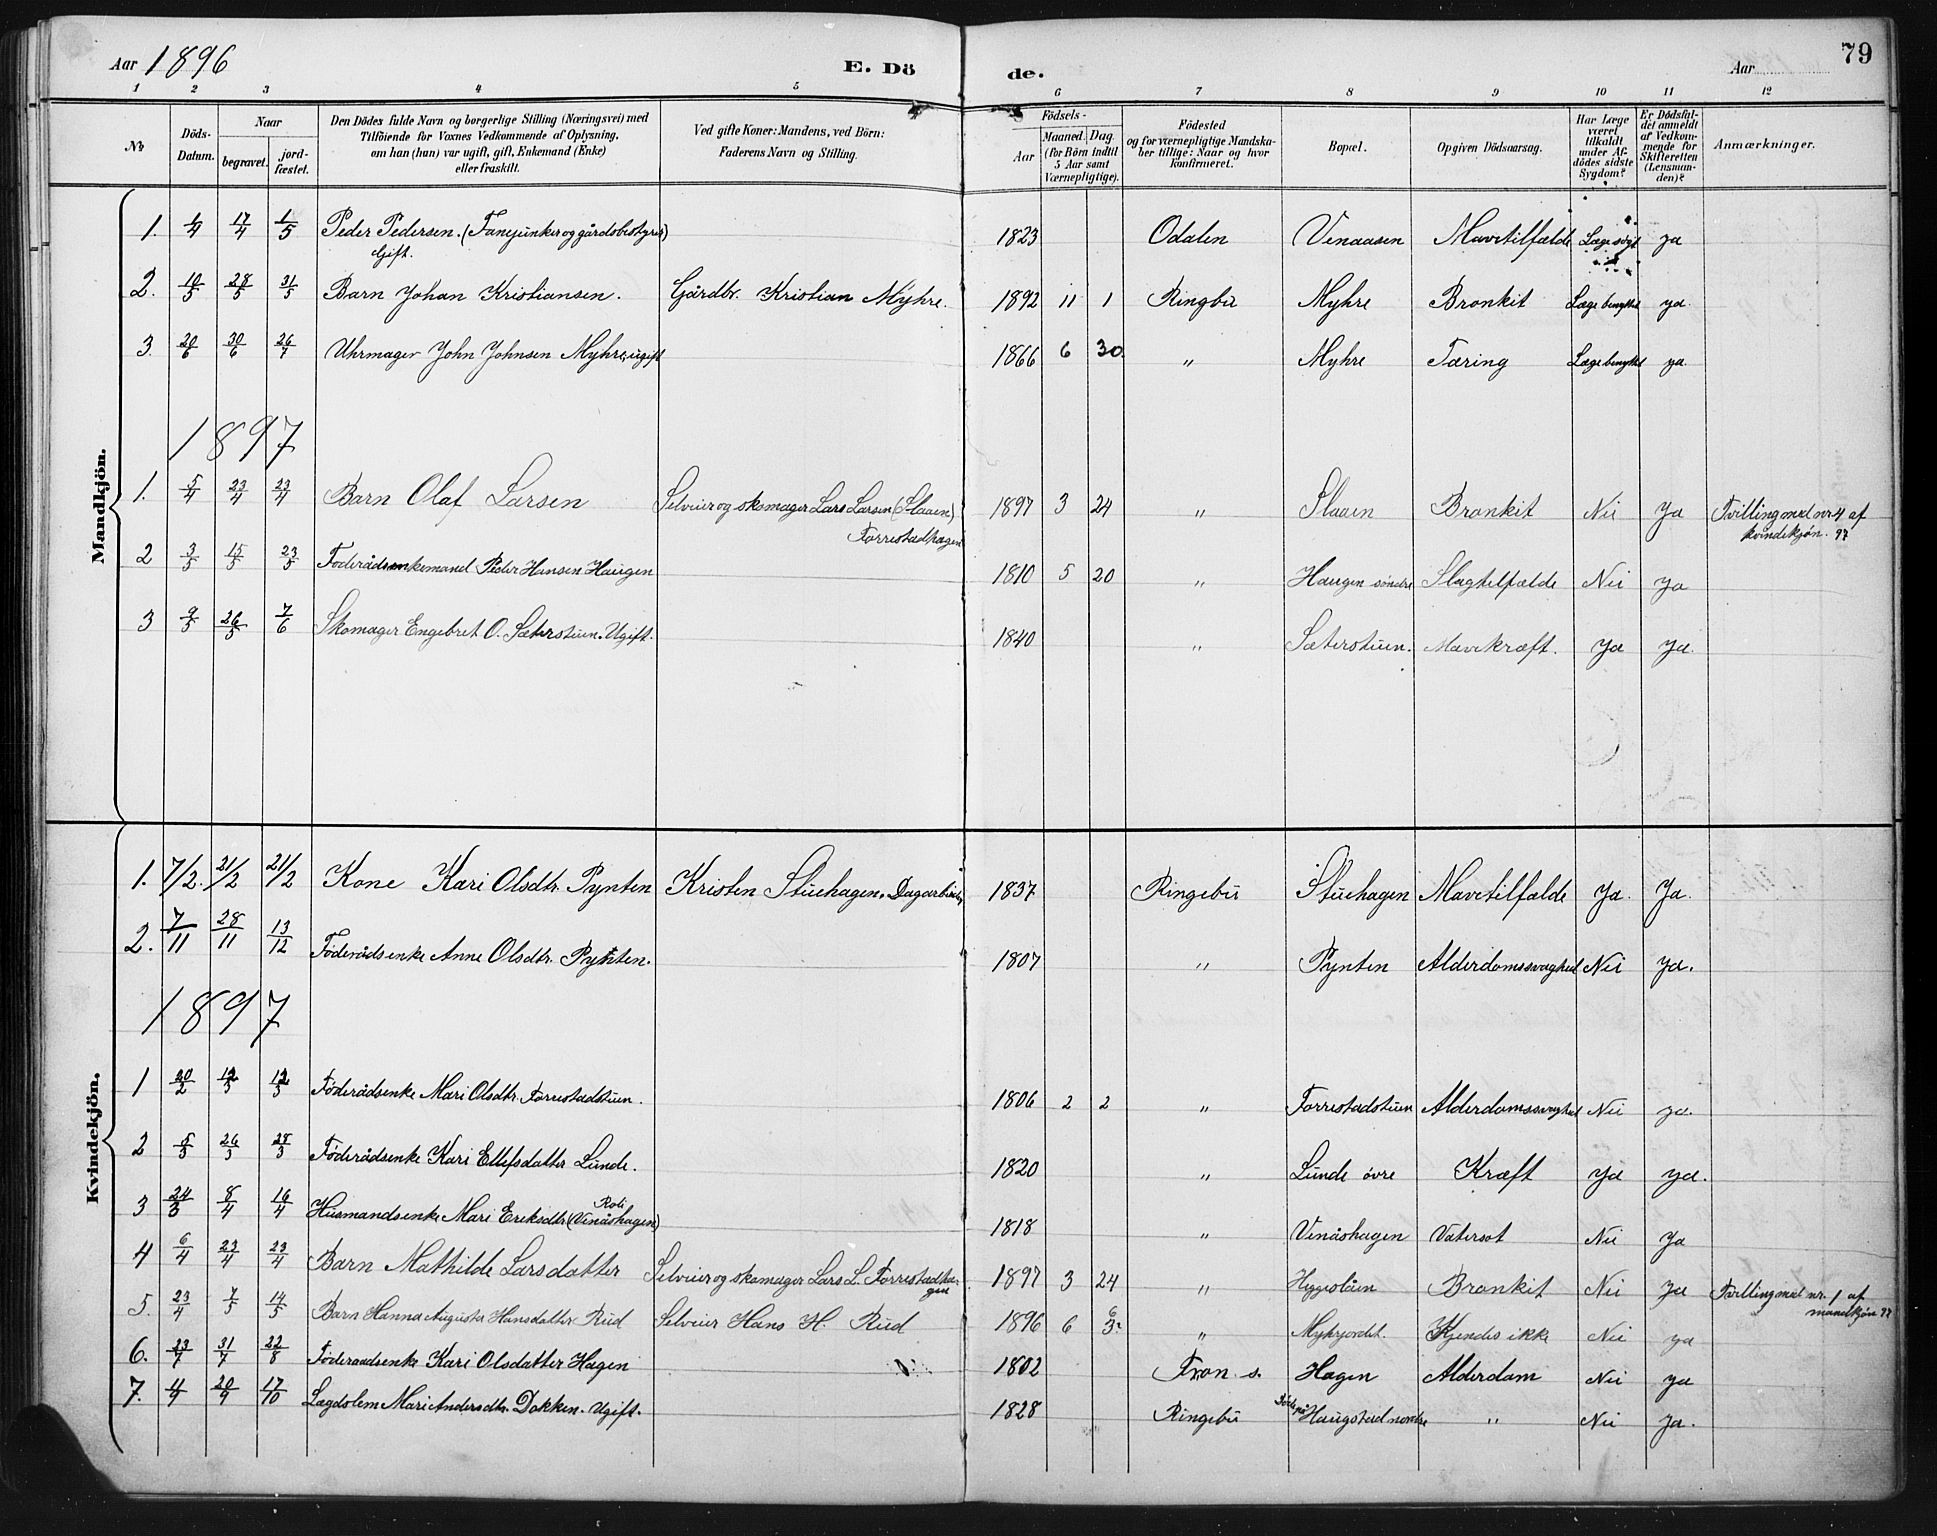 Aar 1896 E. Dö de. Aar 79
1 2 3 4 5 6 7 8 9 10 11 12
No
Döds-Datum.
Naar
begravet.
jord-fæstet.
Den Dödes fulde Navn og borgerlige Stilling (Næringsvei) med
Tilföiende for Voxnes Vedkommende af Oplysning,
om han (hun) var ugift, gift, Enkemand (Enke)
eller fraskilt.
Ved gifte Koner: Mandens, ved Börn:
Faderens Navn og Stilling.
Födsels-
Aar
Maaned. Dag.
(for Börn indtil
5 Aar samt
Værnepligtige).
Födested
og for værnepligtige Mandska-
ber tillige: Naar og hvor
konfirmeret.
Bopæl.
Opgiven Dödsaarsag.
Har Læge
været
tilkaldt
under Af-
dödes sidste
Sygdom?
Er Dödsfal-
det anmeldt
af Vedkom-
mende for
Skifteretten
(Lensman-
den)?
Anmærkninger.
Mandkjön.
1. 17/4 1/5 Peder Pedersen. (Fanejunker og gårdsbestyrer) 1823 Odalen Venaasen Mavetilfælde Læge søgt ja
Gift.
2. 10/5 28/5 31/5 Barn Johan Kristiansen. Gårdbr. Kristian Myhre. 1892 11 1 Ringbu Myhre Bronkit Læge benyttet ja.
3. 20/6 30/6 26/7 Uhrmager John Johnsen Myhre, ugift 1866 6 30 " Myhre Tæring Læge benyttet ja.
1897
1. 5/4 23/4 23/4 Barn Olaf Larsen Selveier og skomager Lars Larsen (Slaaen) 1897 3 24 " Slaaen Bronkit Nei Ja Tvilling med nr 4 af
Forrestadhagen kvindekjøn. 97
2 3/5 15/5 23/5 Foderådsenkemand Peder Hansen Haugen 1810 5 20 " Haugen søndre Slagtilfælde Nei Ja
3 9/5 26/5 7/6 Skomager Engebret O. Sæterstuen. Ugift. 1840 " Sæterstuen. Mavekræft. Ja Ja.
Kvindekjön.
1. 7/2. 21/2 21/2 Kone Kari Olsdtr. Pynten Kristen Stuehagen. Dagarbeider 1837 Ringebu Stuehagen Mavetilfælde Ja. Ja.
2. 7/11 28/11 13/12 Föderådsenke Anne Olsdtr. Pynten. 1807 " Pynten Alderdomssvaghed Nei Ja.
1897
1 20/2 12/3 12/3 Föderådsenke Mari Olsdtr. Forrestadstuen. 1806 2 2 " Forrestadstuen Alderdomssvaghed Nei ja.
2 5/3 26/3 28/3 Föderådsenke Kari Ellefsdatter Lunde. 1820 " Lunde øvre Kræft Ja ja.
3 24/3 8/4 16/4 Husmandsenke Mari Eriksdtr (Venåshagen) 1818 " Venåshagen Vatersot Nei Ja
Roli
4 6/4 23/4 23/4 Barn Mathilde Larsdatter Selveier og skomager Lars L. Forrestadha- 1897 3 24 " Bronkit Nei Ja Tvilling med nr. 1 af
gen mandkjøn 97
5. 23/4 7/5 14/5 Barn Hanna Augusta Hansdatter Rud Selveier Hans H. Rud 1896 6 " Myhrjordet. Kjendes ikke Nei ja
6. 23/7 31/7 22/8 Föderaadsenke Kari Olsdatter Hagen 1802 Fron s. Hagen Alderdom Nei ja
7. 20/9 17/10 Lægdslem Mari Andersdtr. Dokken. Ugift. 1828 Ringebu Haugstad nordre " Nei Ja.